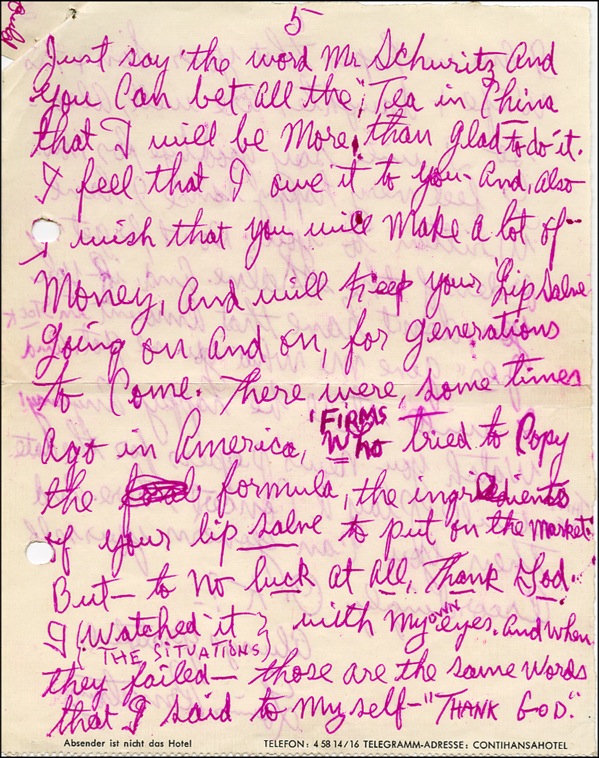 5
Just say the word Mr. Schuritz And
You Can bet All the, Tea in China
that I will be More, than glad to do it.
I feel that I owe it to you - And, also
I wish that you will Make A lot of -
Money, And will keep your Lip Salve
going on And on, for generations
to Come. There were, some times
Ago in America, 'FIRMS Who tried to Copy
the formula, the ingredients
of your lip salve to put on the market.
But - to No luck At All, Thank God..
I {Watched it} with My OWN eyes. And when
THE SITUATIONS
they failed - those are the same words
that I said to Myself - "THANK GOD."
Absender ist nicht das Hotel TELEFON: 4 58 14/16 TELEGRAMM-ADRESSE: CONTIHANSAHOTEL